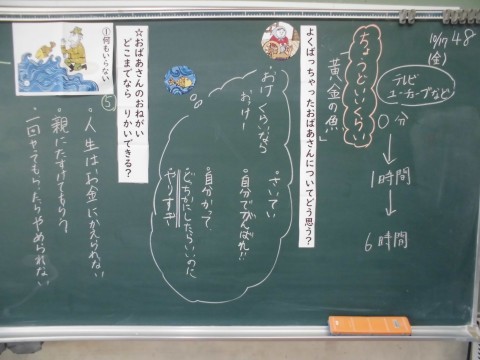 10/17 48
(金)
テレビ
ユーチューブなど
0分
1時間
6時間
ちょうどいいくらい
「黄金の魚」
よくばっちゃったおばあさんについてどう思う?
さいてい
自分でがんばれ!!
自分かって
どちらかにしたらいいのに
やりすぎ
おけくらいなら
おけー
☆おばあさんのおねがい
どこまでなら りかいできる?
①何もいらない
⑤
・人生はお金にかえられない
・親にたすけてもらう
・一回やってもらったらやめられない